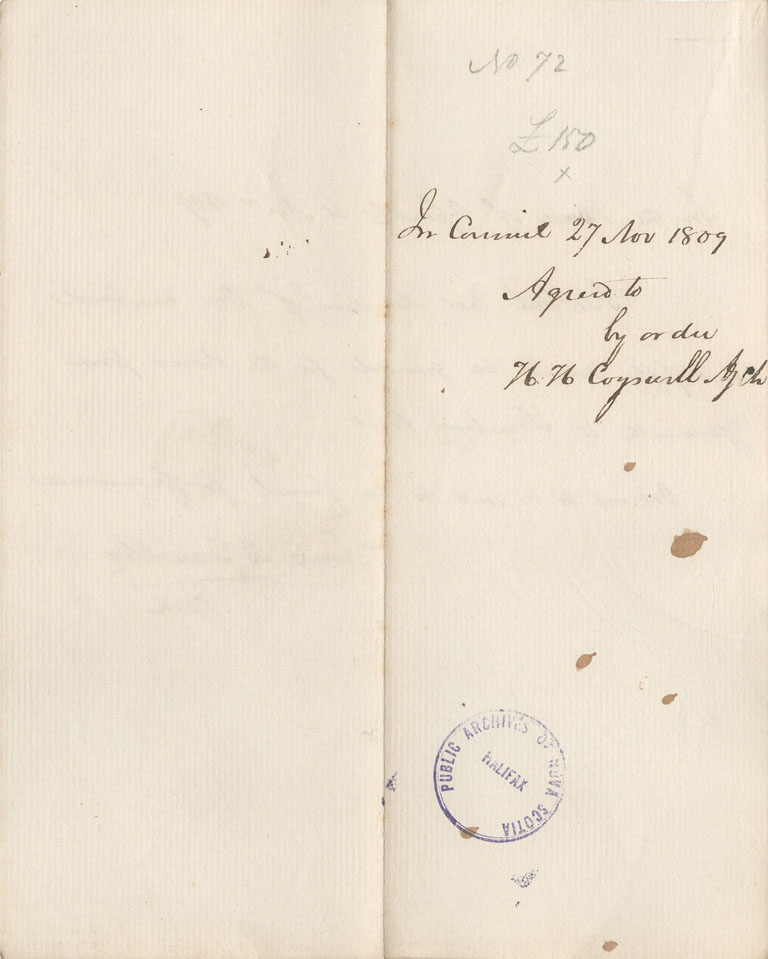 No 72
£150
x
In Council 27 Nov 1809
Agreed to
by order
H H Cogswell
PUBLIC ARCHIVES OF NOVA SCOTIA
HALIFAX